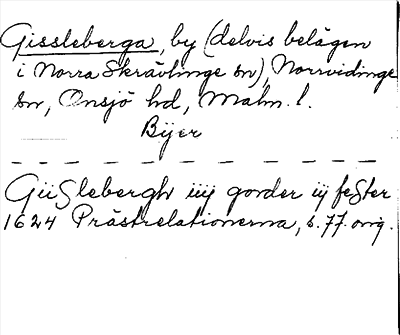 Gissleberga, by (delvis belägen
i Norra Skrävlinge sn), Norrvidinge
sn, Onsjö hd, Malm. l.
Byer
Güslebergh iiij gorder ij fester
1624 Prästrelationerna, s. 77. orig.